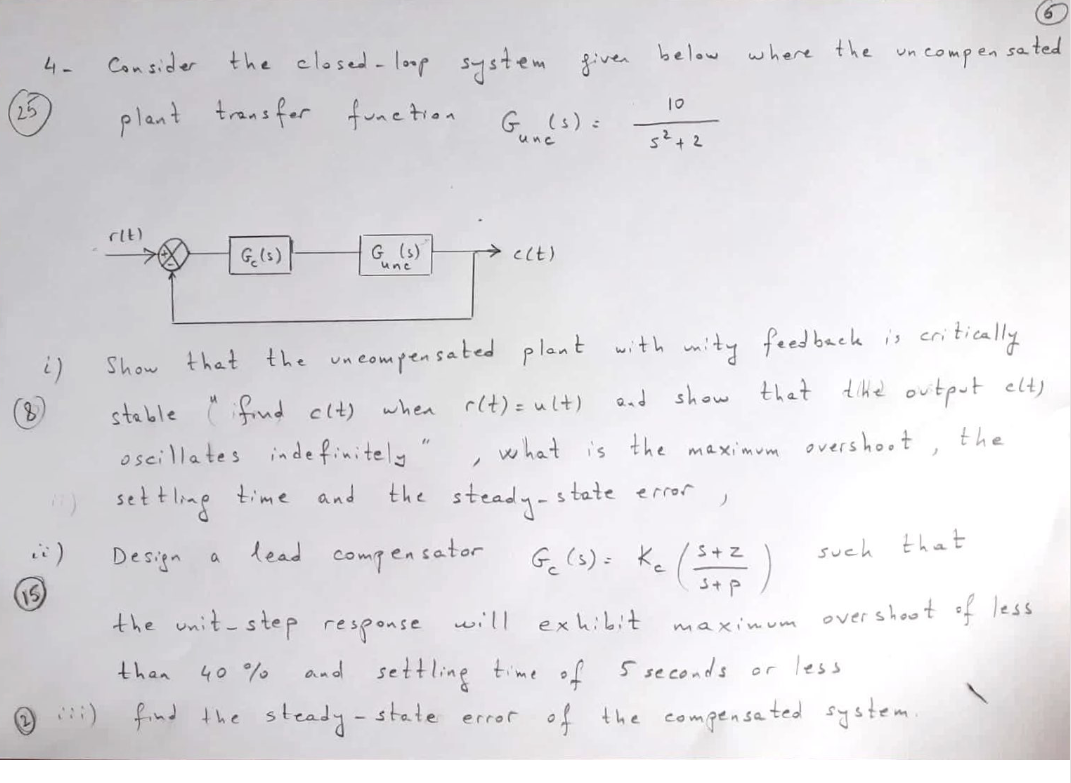 6
4- Consider the closed-loop system given below where the uncompensated
25 plant transfer function G_unc(s) = 10 / (s² + 2)
r(t) + - G_c(s) G_unc(s) c(t)
i) Show that the uncompensated plant with unity feedback is critically
8 stable " find c(t) when r(t) = u(t) and show that the output c(t)
oscillates indefinitely " , what is the maximum overshoot , the
settling time and the steady-state error ,
ii) Design a lead compensator G_c(s) = K_c ( (s+z) / (s+p) ) such that
15
the unit-step response will exhibit maximum overshoot of less
than 40 % and settling time of 5 seconds or less
2 iii) find the steady-state error of the compensated system.